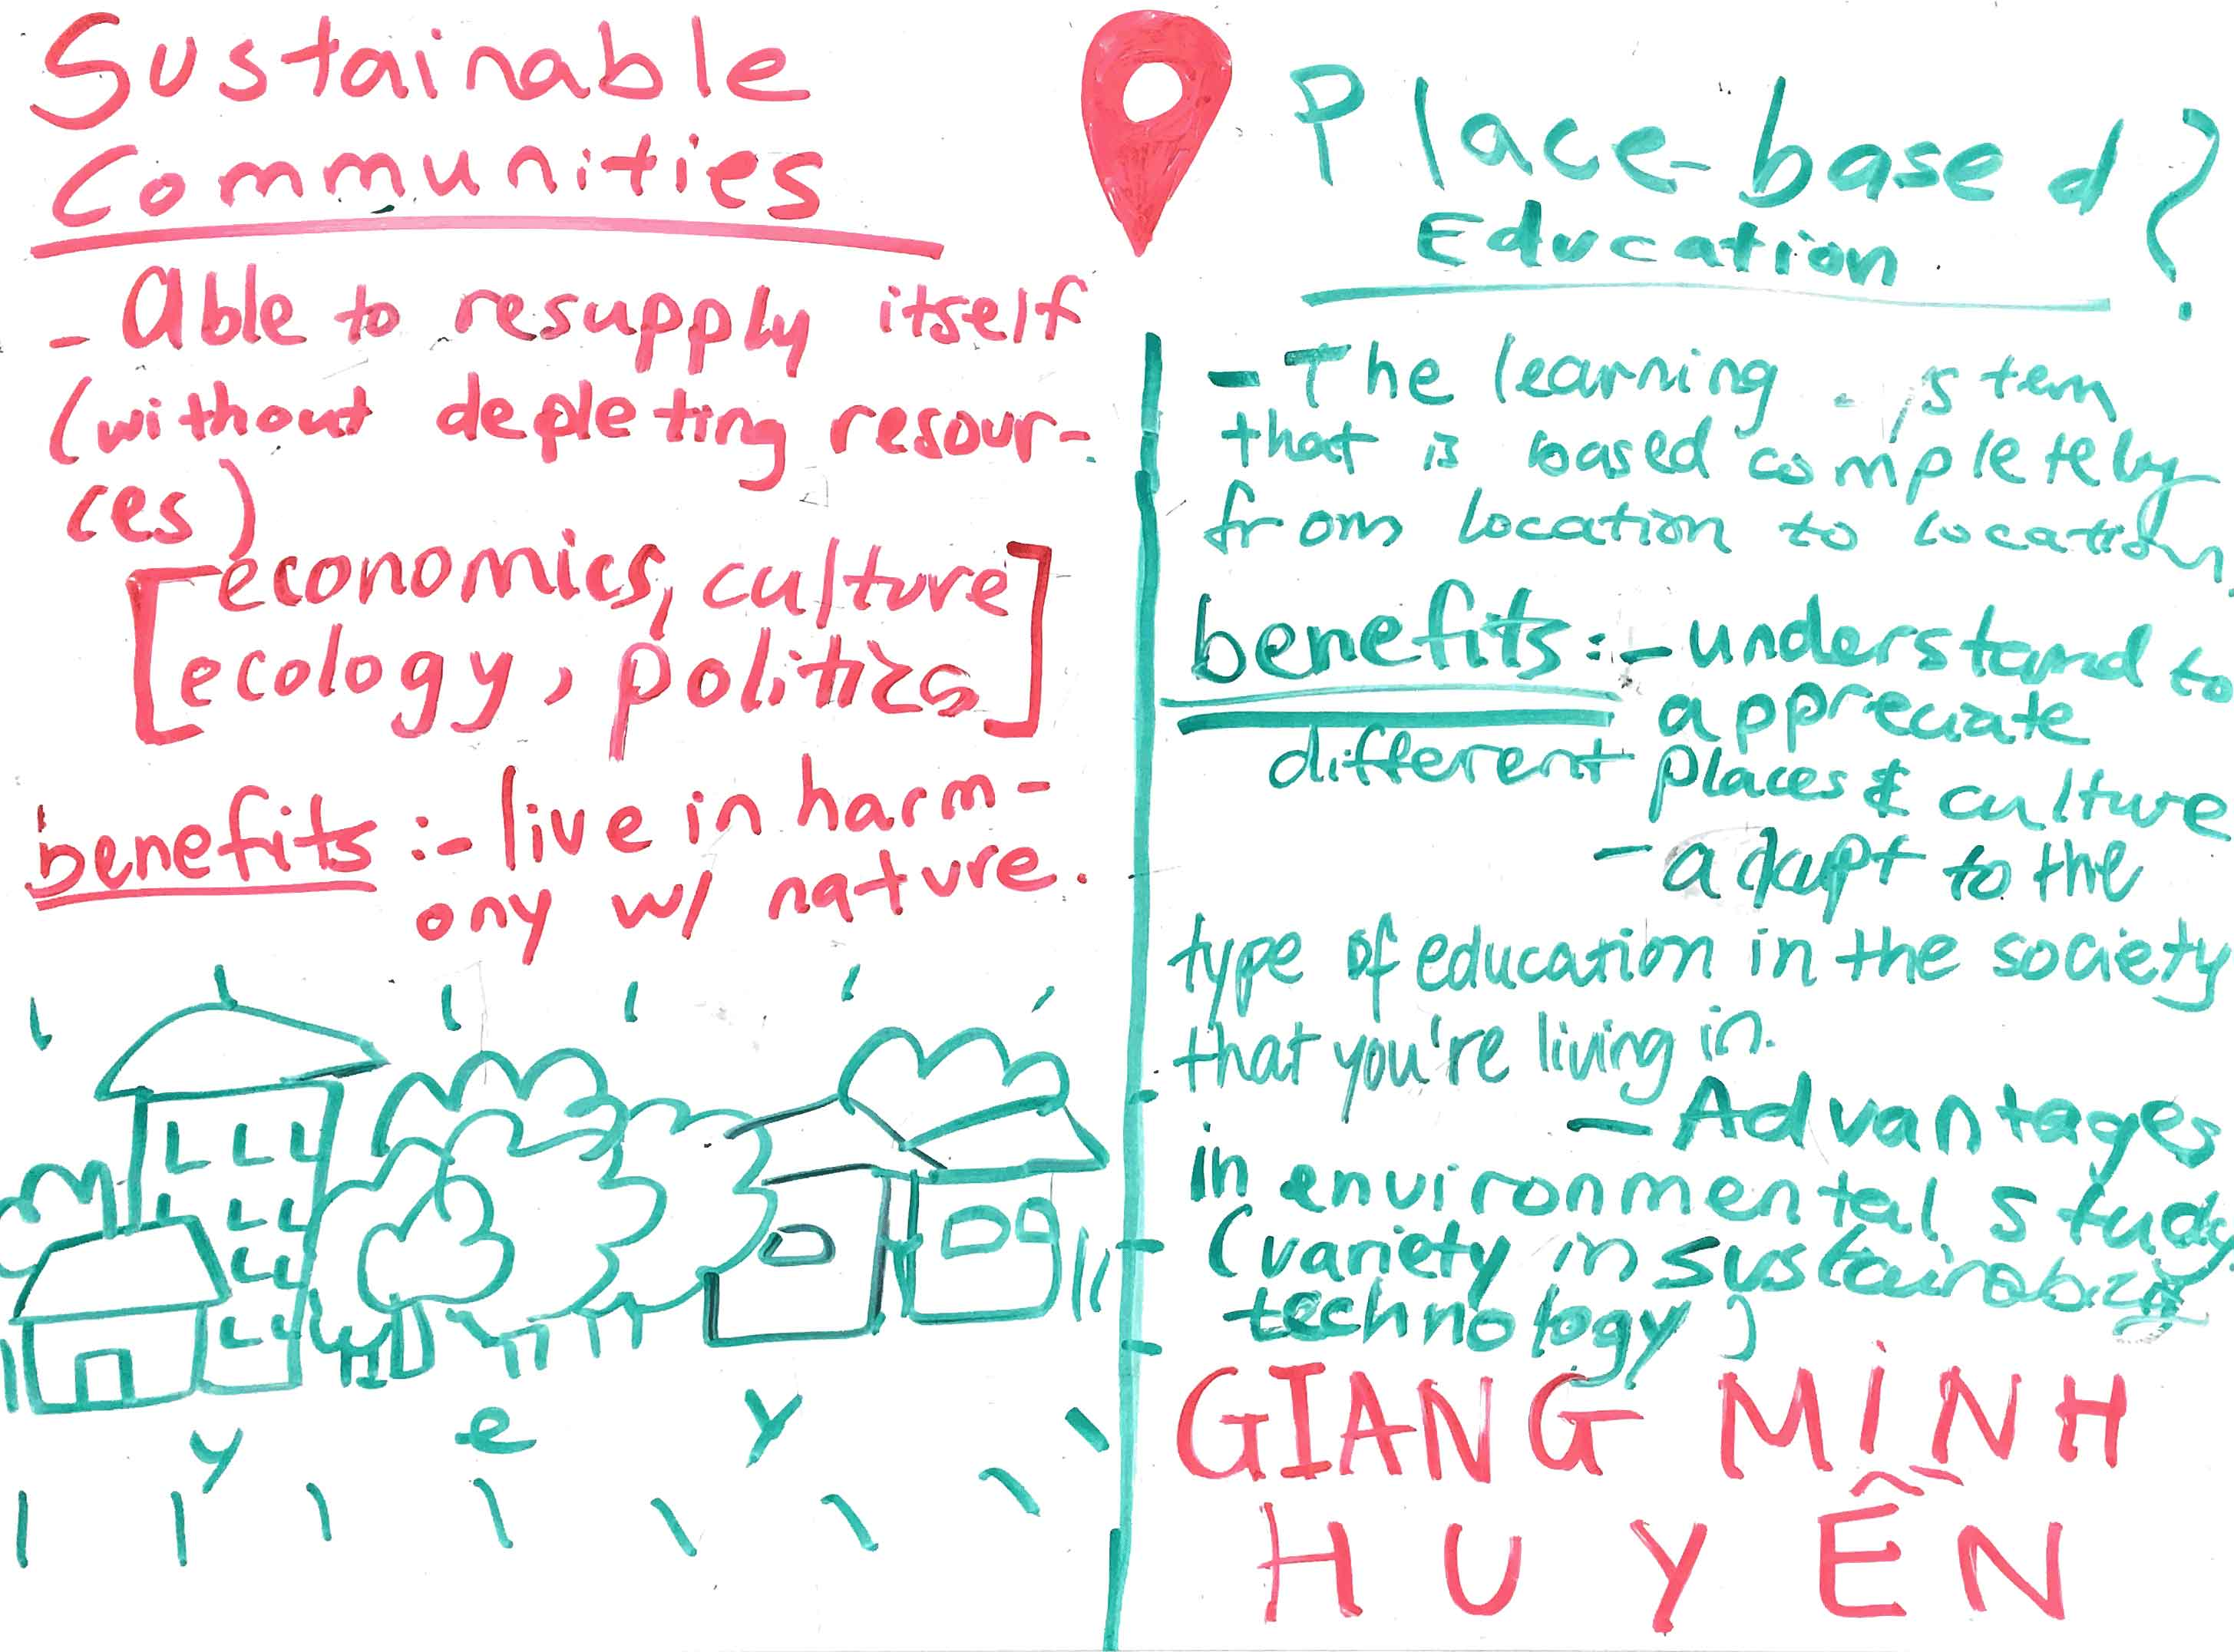 Sustainable
Communities
- Able to resupply itself
(without depleting resour-
ces)
[economics, culture
ecology, politics]
benefits :- live in harm-
ony w/ nature.
y e y
Place-based
Education ?
- The learning system
that is based completely
from location to location.
benefits :- understand to
appreciate
different places & culture
- adapt to the
type of education in the society
that you're living in.
- Advantages
in environmental study.
(variety in sustainability
technology)
GIANG MINH
HUYỀN